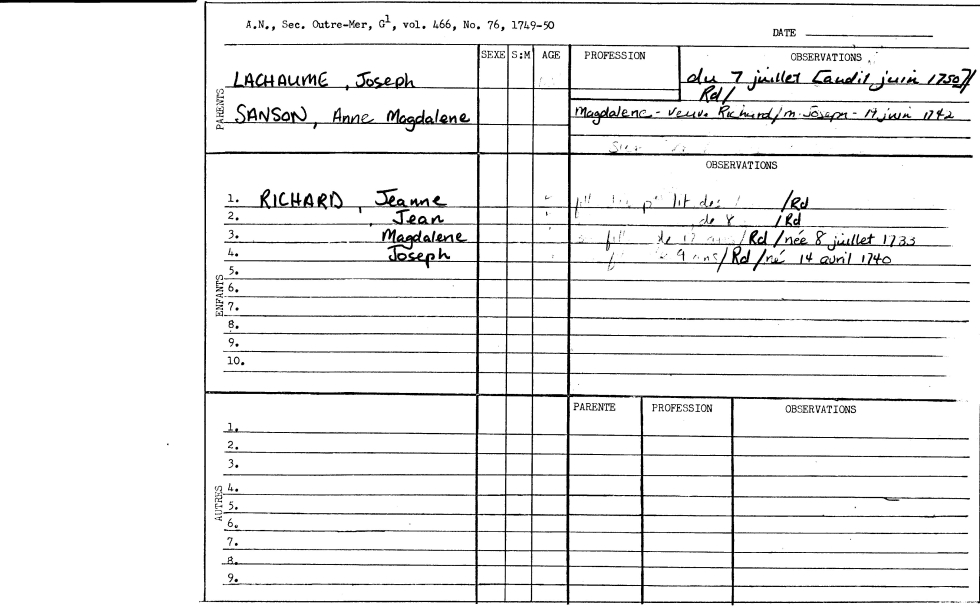 A.N., Sec. Outre-Mer, G1, vol. 466, No. 76, 1749-50
DATE
SEXE S:M AGE PROFESSION OBSERVATIONS
PARENTS
LACHAUME, Joseph du 7 juillet juin 1750/
Rd/
SANSON, Anne Magdalene Magdalene - veuve Richard/m. Joseph - juin 1742
OBSERVATIONS
ENFANTS
1. RICHARD, Jeanne lit des /Rd
2. , Jean de 8 /Rd
3. Magdalene de /Rd/née 8 juillet 1733
4. Joseph 9 ans/Rd/né 14 avril 1740
5.
6.
7.
8.
9.
10.
PARENTE PROFESSION OBSERVATIONS
AUTRES
1.
2.
3.
4.
5.
6.
7.
8.
9.